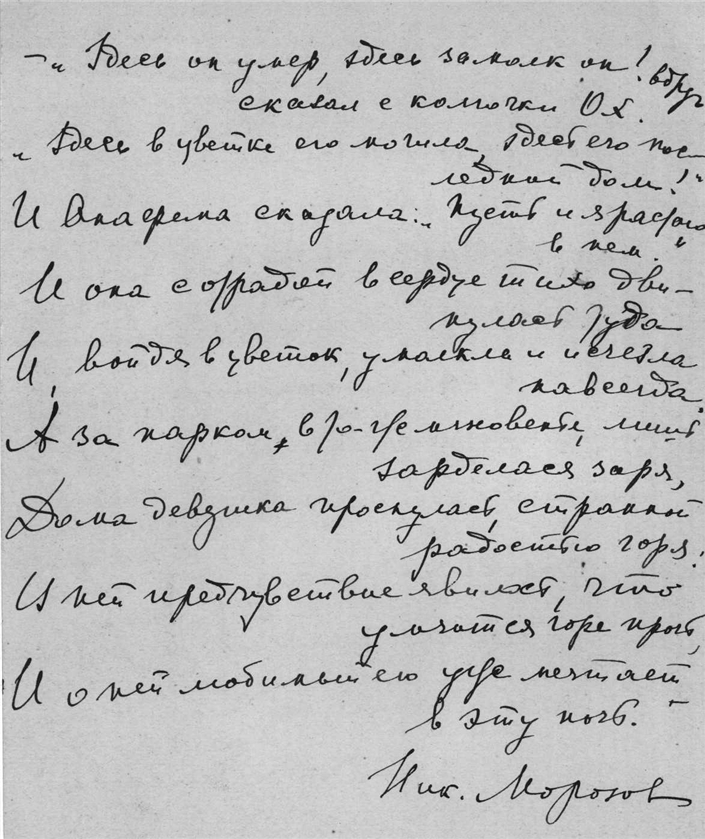 — „Здесь он умер, здесь замолк он! вдруг
сказал с колючки Ох.
„Здесь в цветке его могила, здесь его пос-
ледний дом!“
И Анафема сказала: „Пусть и я растаю
в нем.“
И она с отрадой в сердце тихо дви-
нулась туда
И, войдя в цветок, умолкла и исчезла
навсегда.
А за парком, в то-же мгновенье, лишь
зарделася заря,
Дома девушка проснулась, странной
радостью горя.
И ней предчувствие явилось, что
умчится горе прочь,
И о ней любимый ею уже мечтает
в эту ночь. —
Ник. Морозов